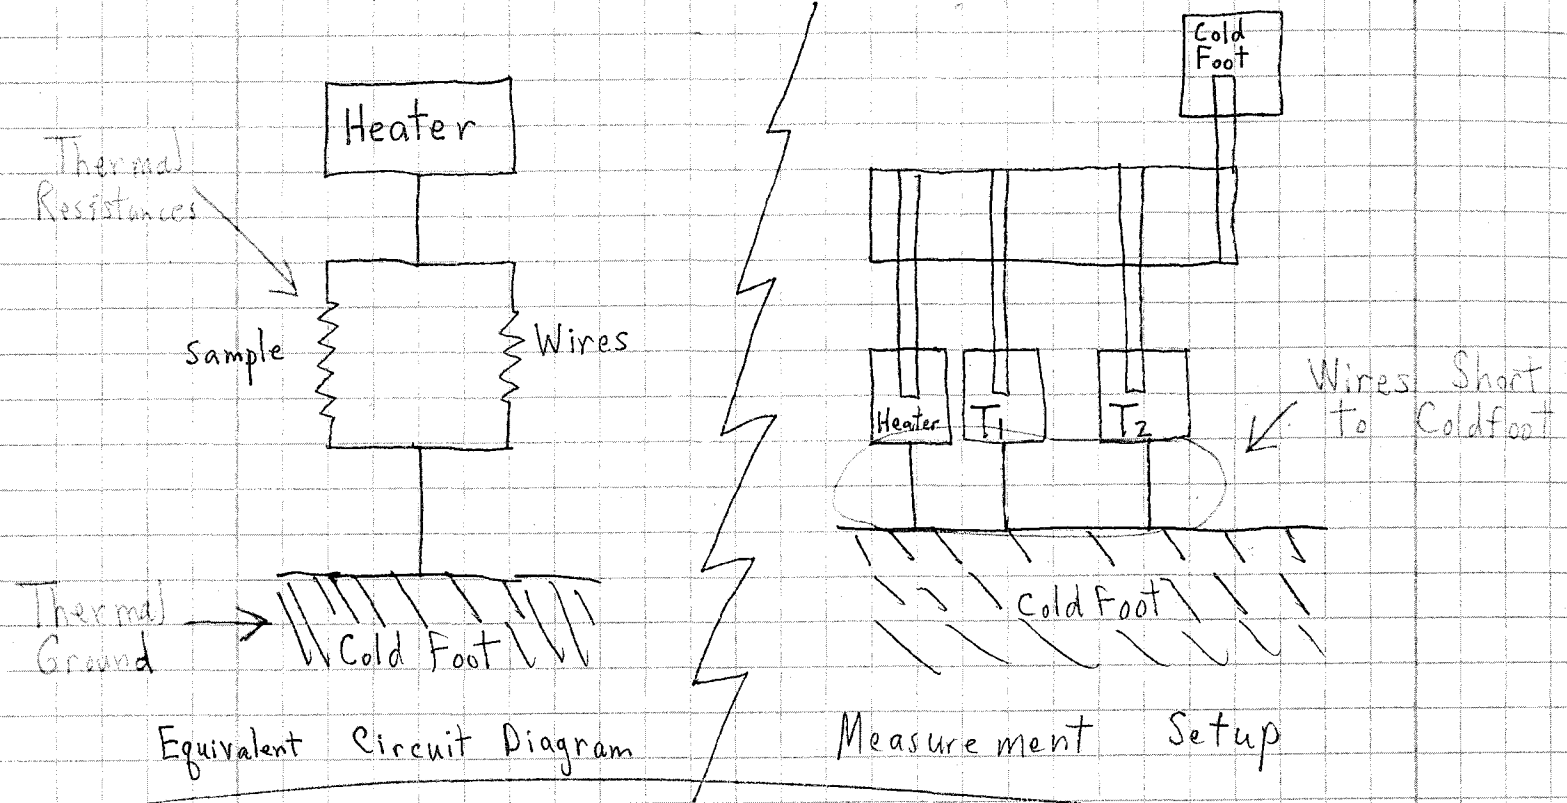 Heater
Thermal
Resistances
Sample
Wires
Thermal
Ground
Cold Foot
Equivalent Circuit Diagram
Cold
Foot
Heater
T1
T2
Wires Short
to Coldfoot
Cold Foot
Measurement Setup